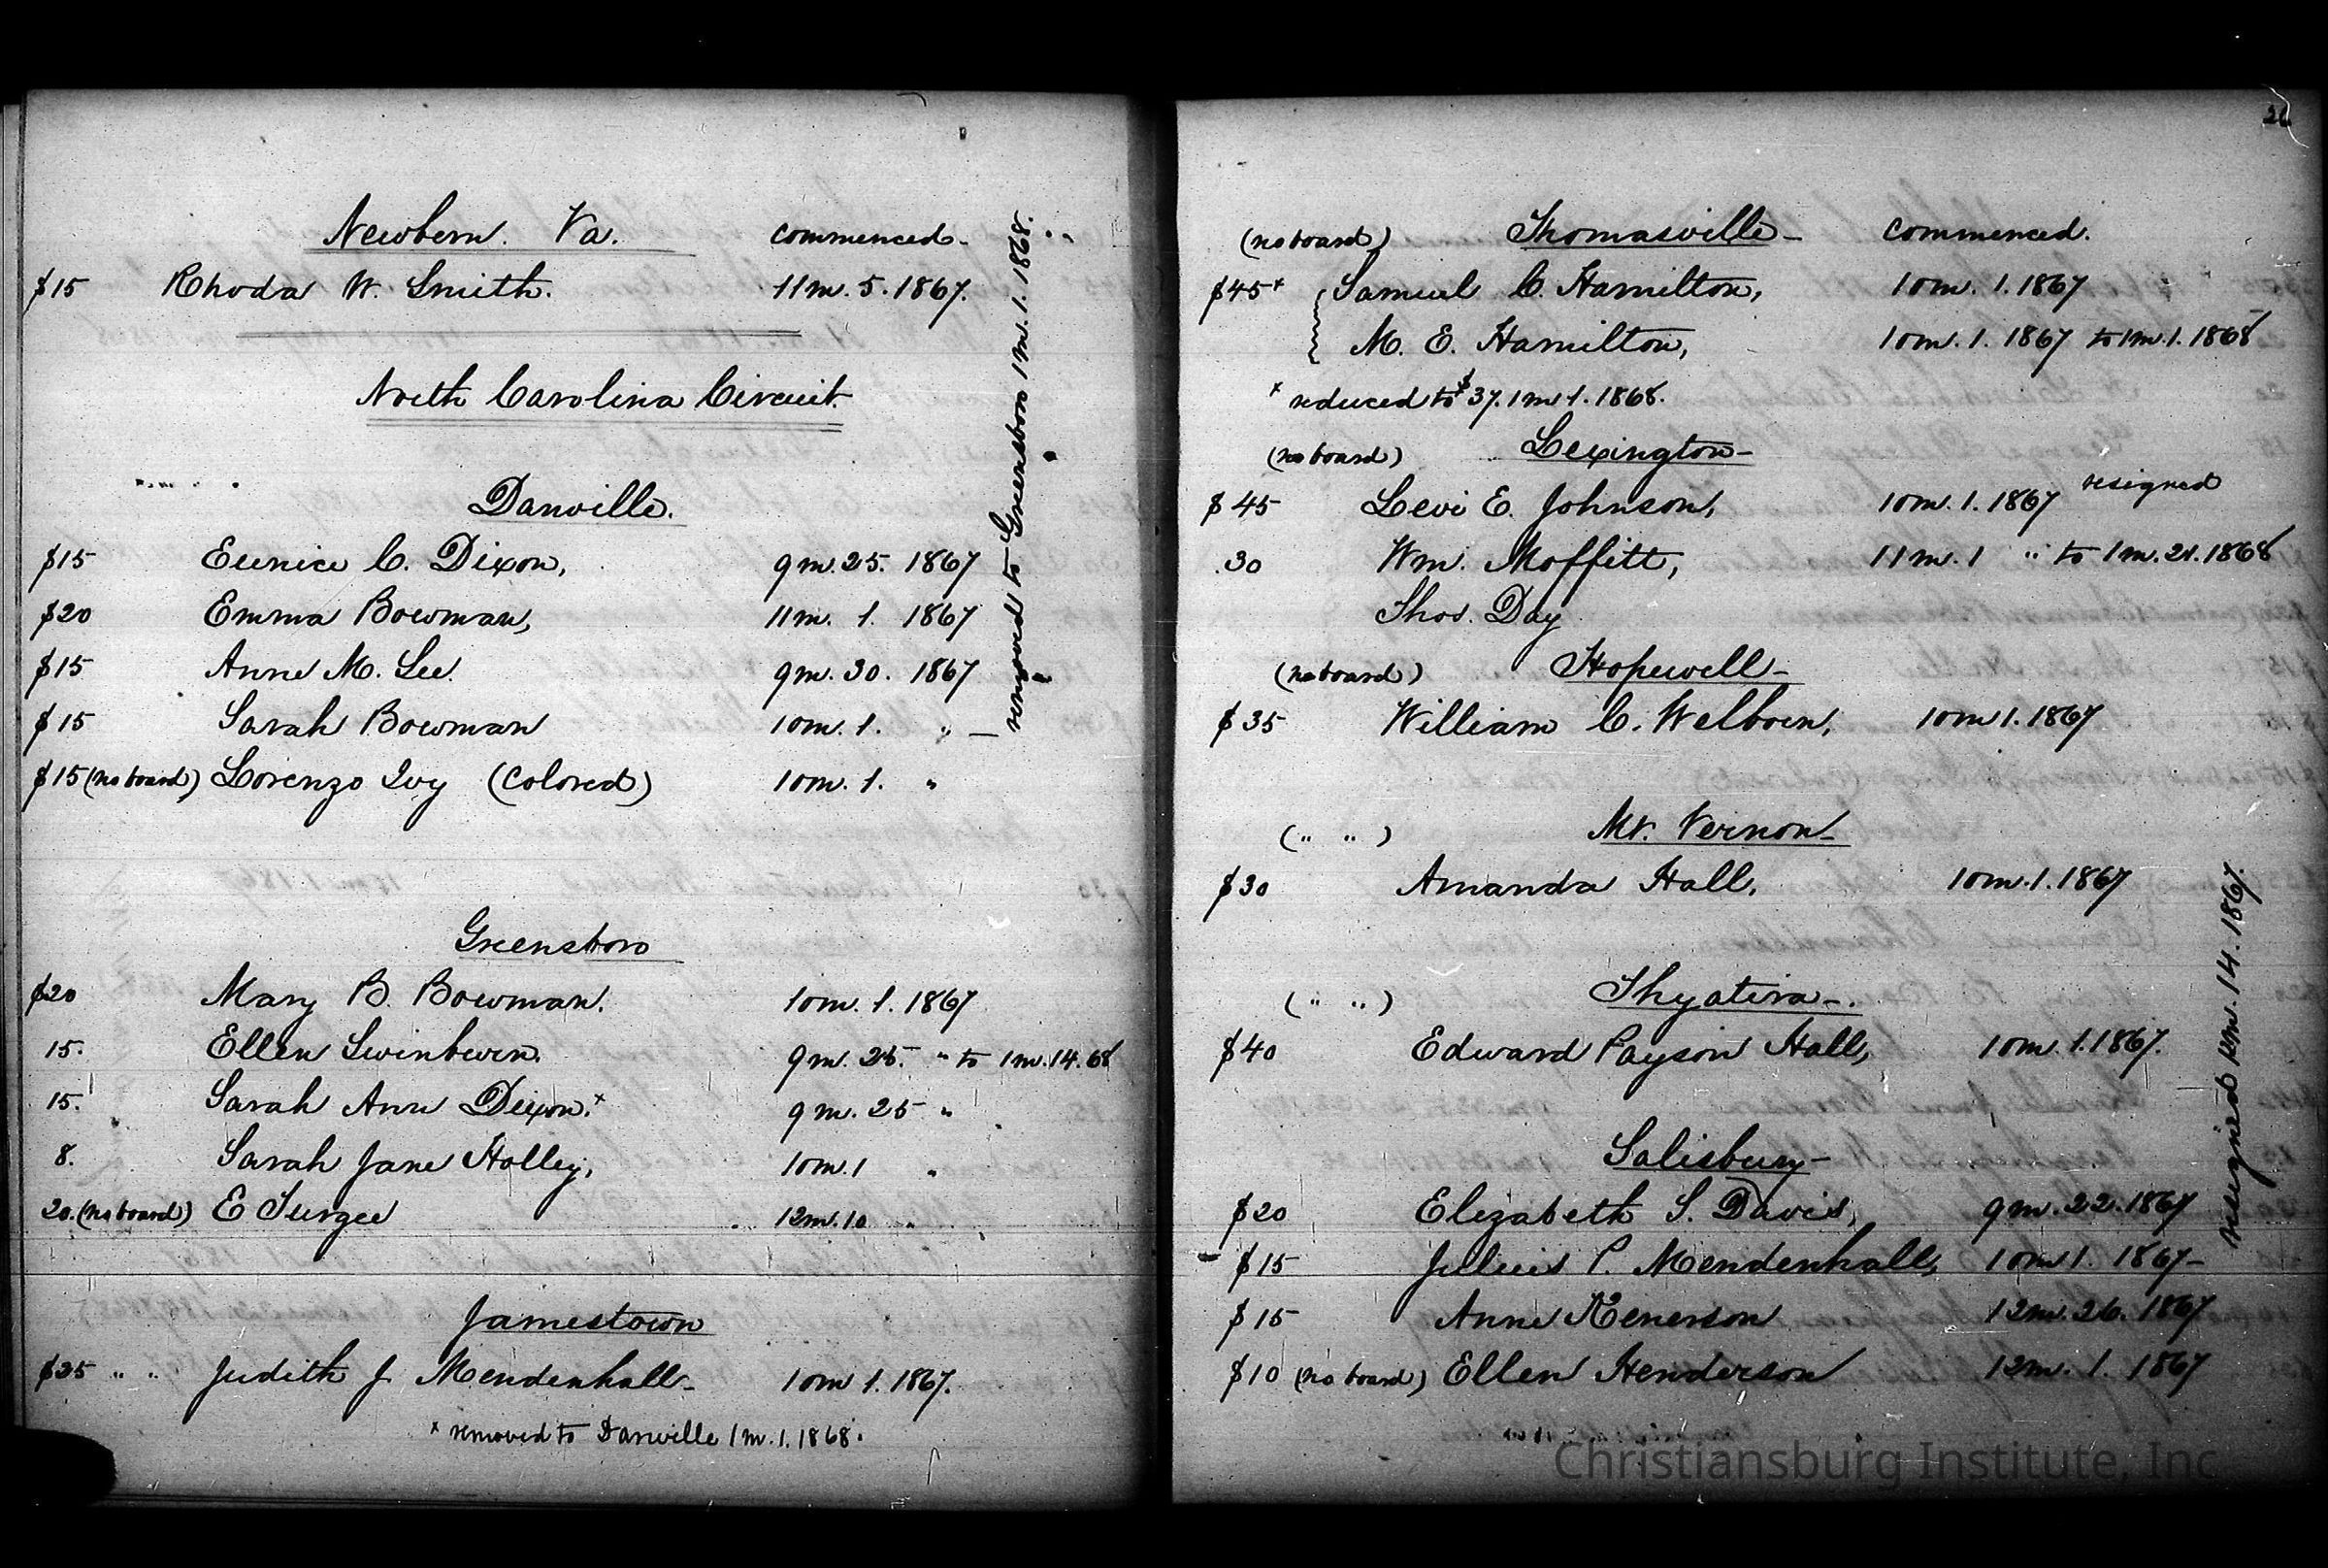 Newbern. Va. commenced-
$15 Rhoda W. Smith. 11m. 5. 1867.
North Carolina Circuit.
Danville.
$15 Eunice C. Dixon, 9m. 25. 1867
$20 Emma Bowman, 11m. 1. 1867
$15 Anne M. Lee. 9m. 30. 1867
$15 Sarah Bowman 10m. 1. " —
removed to Greensboro 1m. 1. 1868.
$15 (no board) Lorenzo Ivy (Colored) 10m. 1. "
Greensboro
$20 Mary B. Bowman. 10m. 1. 1867
15. Ellen Swinburn. 9m. 25. " to 1m. 14. 68
15. Sarah Ann Dixon.x 9m. 25 "
8. Sarah Jane Holley, 10m. 1 "
20. (no board) E 12m. 10 "
Jamestown
$25 " " Judith J. Mendenhall- 10m 1. 1867.
x removed to Danville 1m. 1. 1868.
26
(no board) Thomasville- Commenced.
$45x Samuel C. Hamilton, 10m. 1. 1867
M. E. Hamilton, 10m. 1. 1867 to 1m. 1. 1868
x reduced to $37. 1m 1. 1868.
(no board) Lexington-
$45 Levi E. Johnson, 10m. 1. 1867 resigned
30 Wm. Moffitt, 11m. 1 " to 1m. 21. 1868
Thos. Day
(no board) Hopewell-
$35 William C. Welborn, 10m 1. 1867
( " " ) Mt. Vernon-
$30 Amanda Hall, 10m. 1. 1867
( " " ) Thyatira-.
$40 Edward Payson Hall, 10m. 1. 1867.
Salisbury-
$20 Elizabeth S. Davis, 9m. 22. 1867
- $15 Julius P. Mendenhall, 10m 1. 1867-
resigned 14. 1867.
$15 Anne 12m. 26. 1867
$10 (no board) Ellen Henderson 12m. 1. 1867
Christiansburg Institute, Inc